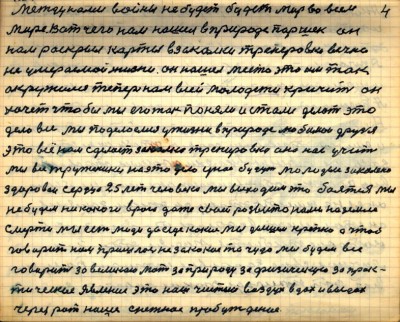 Между нами войны не будет будет мир во всем 4
мире вот чего нам нашел в природе паршек он
нам раскрыл карты в закалки тренеровке вечно
не умераемой жизни. он нашел место это им так
окружился теперь нам всей молодости кричит он
хочет чтобы мы его так поняли и стали делать это
дело все мы поделаем у жизни в природе любимое друзья
это всё нам сделает закалка тренеровка она нас учит
мы все труженики на это дело у нас будут молодые закалено
здоровые сердце 25 лет человека мы выходим это боятся мы
не будем никакого врага даже своей развито нами на земле
смерти мы есть люди до сего какие мы дышим крепко а чтоб
говорит нам пришлое не закокая то чудо мы будем все
говорить за великою мать за природу за физическую за прак-
тическое явление это наш чистый воздух вдох и выдох
через рот наше снежное пробуждение